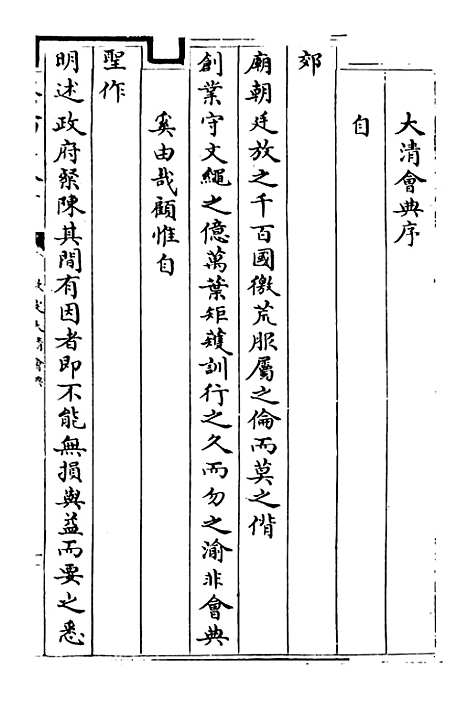 大清會典序
自
郊
廟朝廷放之千百國徼荒服屬之倫而莫之偕
創業守文繩之億萬葉矩矱訓行之久而勿之渝非會典
奚由哉顧惟自
聖作
明述政府粲陳其間有因者即不能無損與益而要之悉